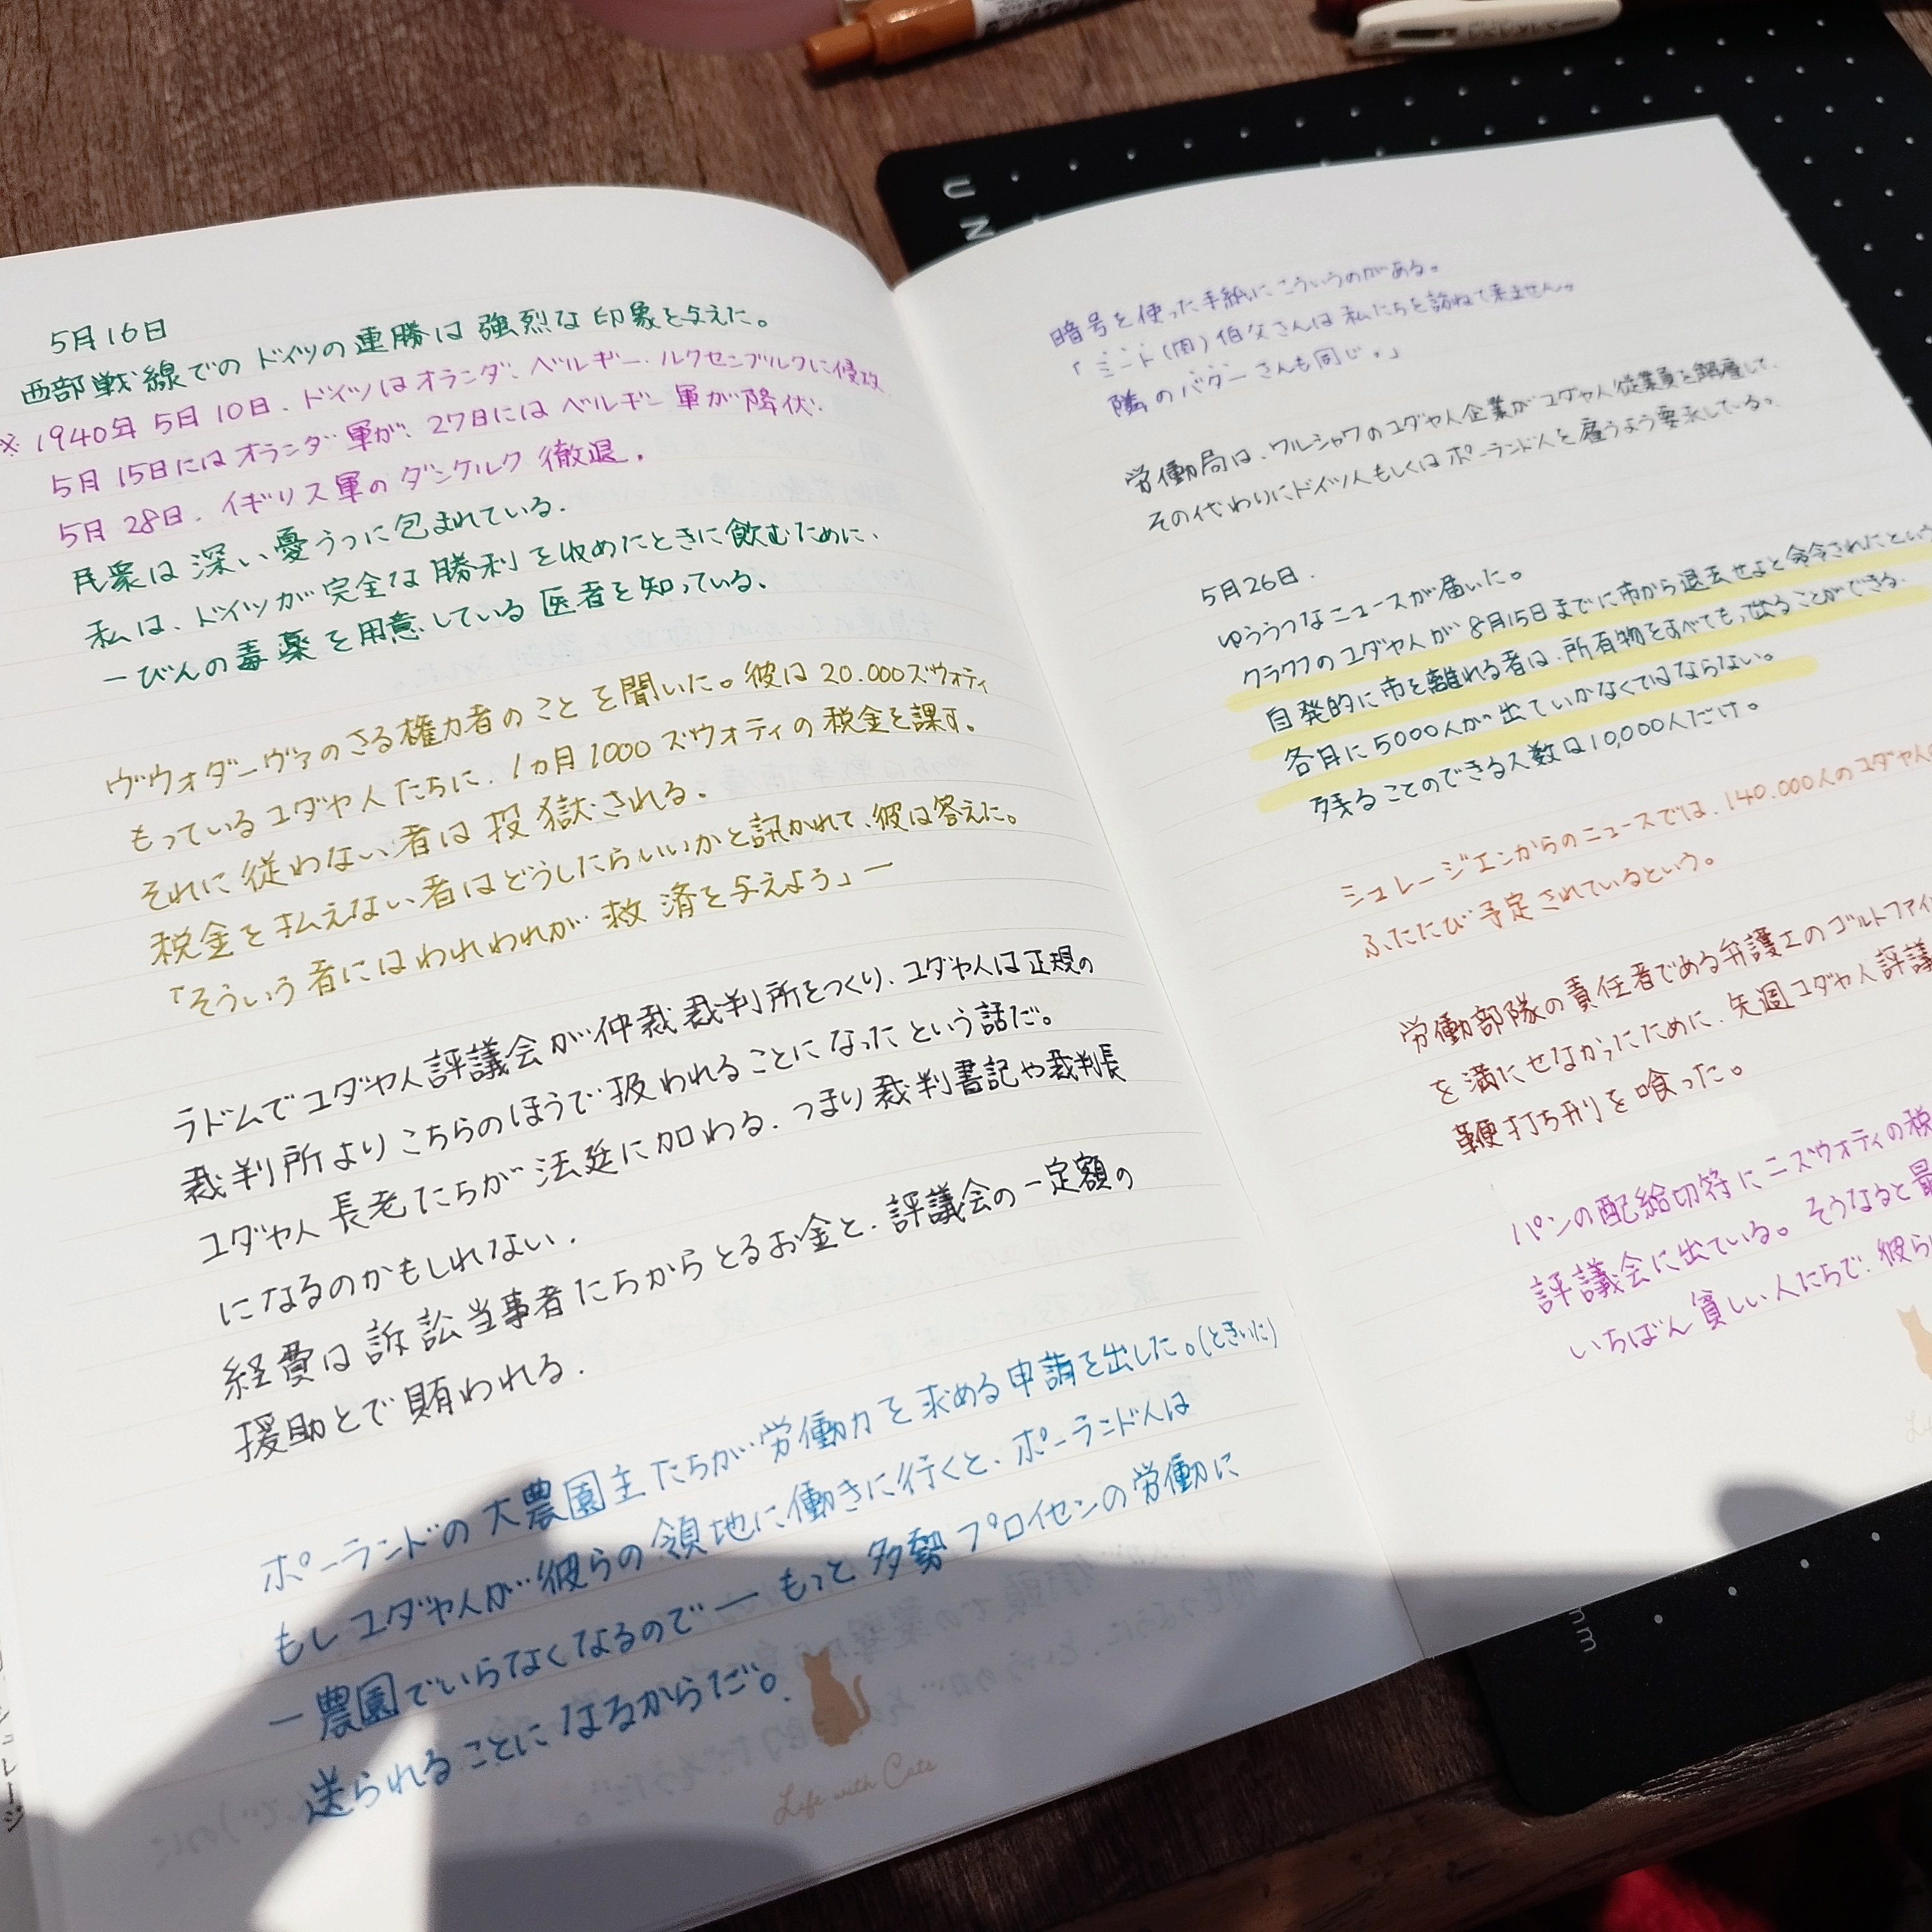 5月16日
西部戦線でのドイツの連勝は強烈な印象を与えた。
※1940年5月10日、ドイツはオランダ、ベルギー、ルクセンブルクに侵攻、
5月15日にはオランダ軍が、27日にはベルギー軍が降伏、
5月28日、イギリス軍のダンケルク徹退、
民衆は深い憂うつに包まれている、
私は、ドイツが完全な勝利を収めたときに飲むために、
一びんの毒薬を用意している医者を知っている、
ヴウォダーヴァのさる権力者のことを聞いた。彼は20.000ズウォティ
もっているユダヤ人たちに、1カ月1000ズウォティの税金を課す。
それに従わない者は投獄される。
税金を払えない者はどうしたらいいかと訊かれて、彼は答えた。
「そういう者にはわれわれが救済を与えよう」ー
ラドムでユダヤ人評議会が仲裁裁判所をつくり、ユダヤ人は正規の
裁判所よりこちらのほうで扱われることになったという話だ。
ユダヤ人長老たちが法廷に加わる、つまり裁判書記や裁判長
になるのかもしれない、
経費は訴訟当事者たちからとるお金と、評議会の一定額の
援助とで賄われる、
ポーランドの大農園主たちが労働力を求める申請を出した。(ときいた)
もしユダヤ人が彼らの領地に働きに行くと、ポーランド人は
ー農園でいらなくなるのでーもっと多勢プロイセンの労働に
送られることになるからだ。
Life with Cats
暗号を使った手紙にこういうのがある。
「ミント(肉)伯父さんは私たちを訪ねて来ません。
隣のバターさんも同じ。」
労働局は、ワルシャワのユダヤ人企業がユダヤ人従業員を解雇して、
その代わりにドイツ人もしくはポーランド人を雇うよう要求している、
5月26日、
ゆううつなニュースが届いた。
クラクフのユダヤ人が8月15日までに市から退去せよと命令されたという
自発的に市を離れる者は、所有物をすべてもって出ることができる、
各月に5000人が出ていかなくてはならない。
残ることのできる人数は10,000人だけ。
シュレージエンからのニュースでは、140.000人のユダヤ人の
ふたたび予定されているという。
労働部隊の責任者である弁護士のゴルトファイ
を満たせなかったために、先週ユダヤ人評議
鞭打ち刑を喰った。
パンの配給切符に二ズウォティの税
評議会に出ている。そうなると最
いちばん貧しい人たちで、彼ら
UN
mm